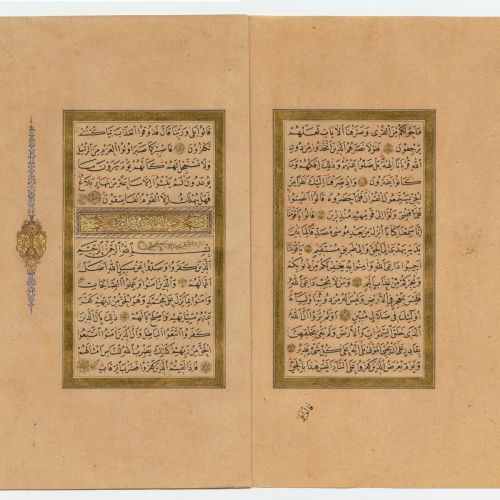 ما حولكم من القرى وصرفنا الآيات لعلهم
يرجعون فلولا نصرهم الذين اتخذوا من دون
الله قربانا آلهة بل ضلوا عنهم وذلك إفكهم وما
كانوا يفترون وإذ صرفنا إليك نفرا من
الجن يستمعون القرآن فلما حضروه قالوا أنصتوا
فلما قضي ولوا إلى قومهم منذرين قالوا يا قومنا
إنا سمعنا كتابا أنزل من بعد موسى مصدقا لما بين
يديه يهدي إلى الحق وإلى طريق مستقيم يا قومنا
أجيبوا داعي الله وآمنوا به يغفر لكم من ذنوبكم
ويجركم من عذاب أليم ومن لا يجب داعي الله
فليس بمعجز في الأرض وليس له من دونه أولياء
أولئك في ضلال مبين أولم يروا أن الله
الذي خلق السموات والأرض ولم يعي بخلقهن
بقادر على أن يحيي الموتى بلى إنه على كل شيء قدير
ويوم يعرض الذين كفروا على النار أليس هذا بالحق
قالوا بلى
قالوا بلى وربنا قال فذوقوا العذاب بما كنتم
تكفرون فاصبر كما صبر أولوا العزم من الرسل
ولا تستعجل لهم كأنهم يوم يرون ما
يوعدون لم يلبثوا إلا ساعة من نهار بلاغ
فهل يهلك إلا القوم الفاسقون
بسم الله الرحمن الرحيم
الذين كفروا وصدوا عن سبيل الله أضل
أعمالهم والذين آمنوا وعملوا الصالحات
وآمنوا بما نزل على محمد وهو الحق من ربهم كفر
عنهم سيئاتهم وأصلح بالهم ذلك بأن الذين
كفروا اتبعوا الباطل وأن الذين آمنوا اتبعوا
الحق من ربهم كذلك يضرب الله للناس أمثالهم
فإذا لقيتم الذين كفروا فضرب الرقاب